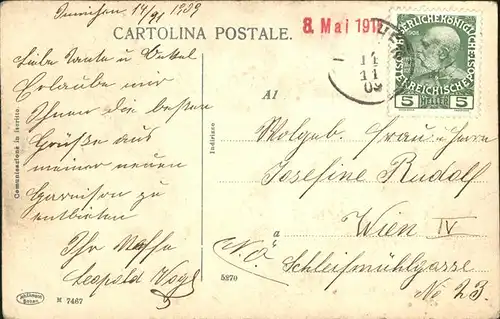 Innichen 14/XI 1909
CARTOLINA POSTALE.
8. Mai 191
14
11
09
5 HELLER 5
Liebe Tante u Onkel
Erlaube mir
Ihnen die besten
Grüße aus
meiner neuen
Garnison zu
entbieten
Ihr Neffe
Leopold Vogl
Comunicazioni in iscritto.
Indirizzo
Al
Wolgeb. Frau u Herrn
Josefine Rudolf
a
Wien IV
N.Ö.
Schleifmühlgasse
No 23.
M 7467
5270